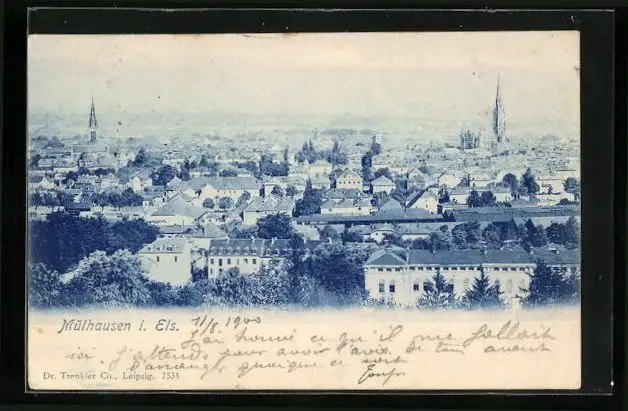 Mülhausen i. Els. 11/8 1900
J'ai trouvé ce qu'il me fallait
ici j'attends pour avoir l'avis de ton avant
d'arranger quoique ce soit
Dr. Trenkler Co., Leipzig. 7331